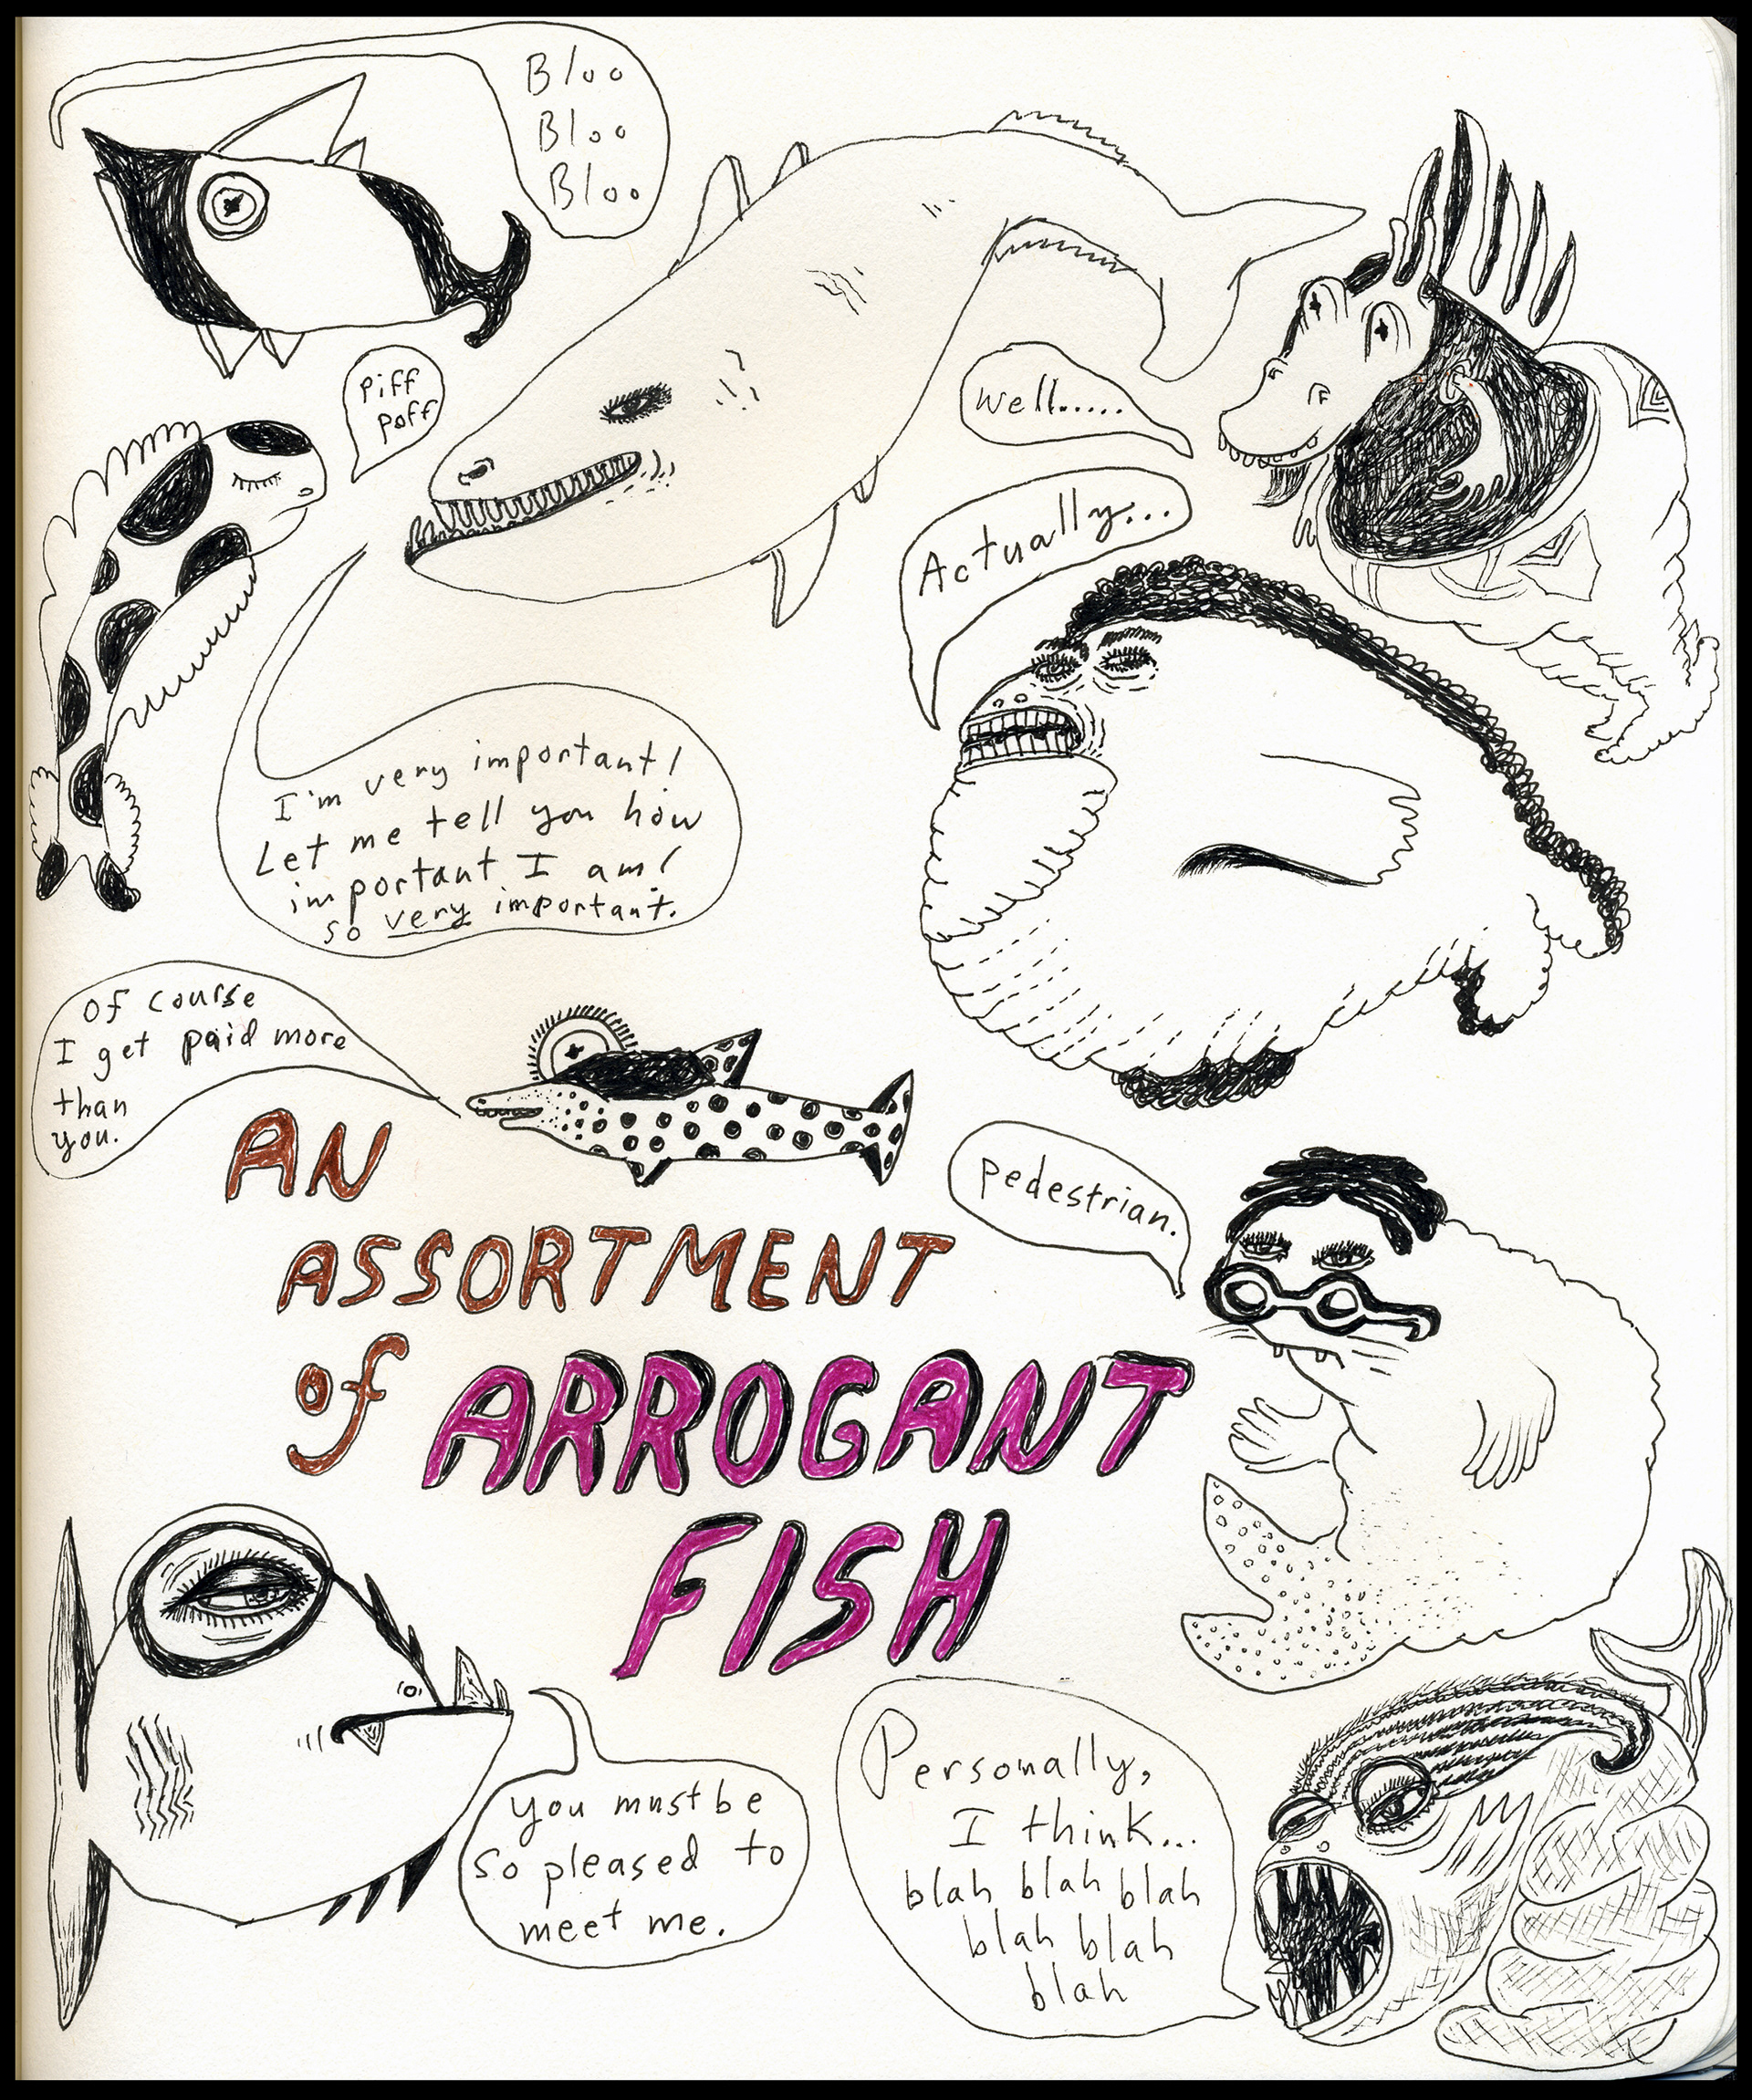 Bloo
Bloo
Bloo
Piff
Poff
Well.....
Actually...
I'm very important!
Let me tell you how
important I am!
so very important.
Of course
I get paid more
than
you.
AN
ASSORTMENT
of ARROGANT
FISH
pedestrian.
You must be
so pleased to
meet me.
Personally,
I think...
blah blah blah
blah blah
blah